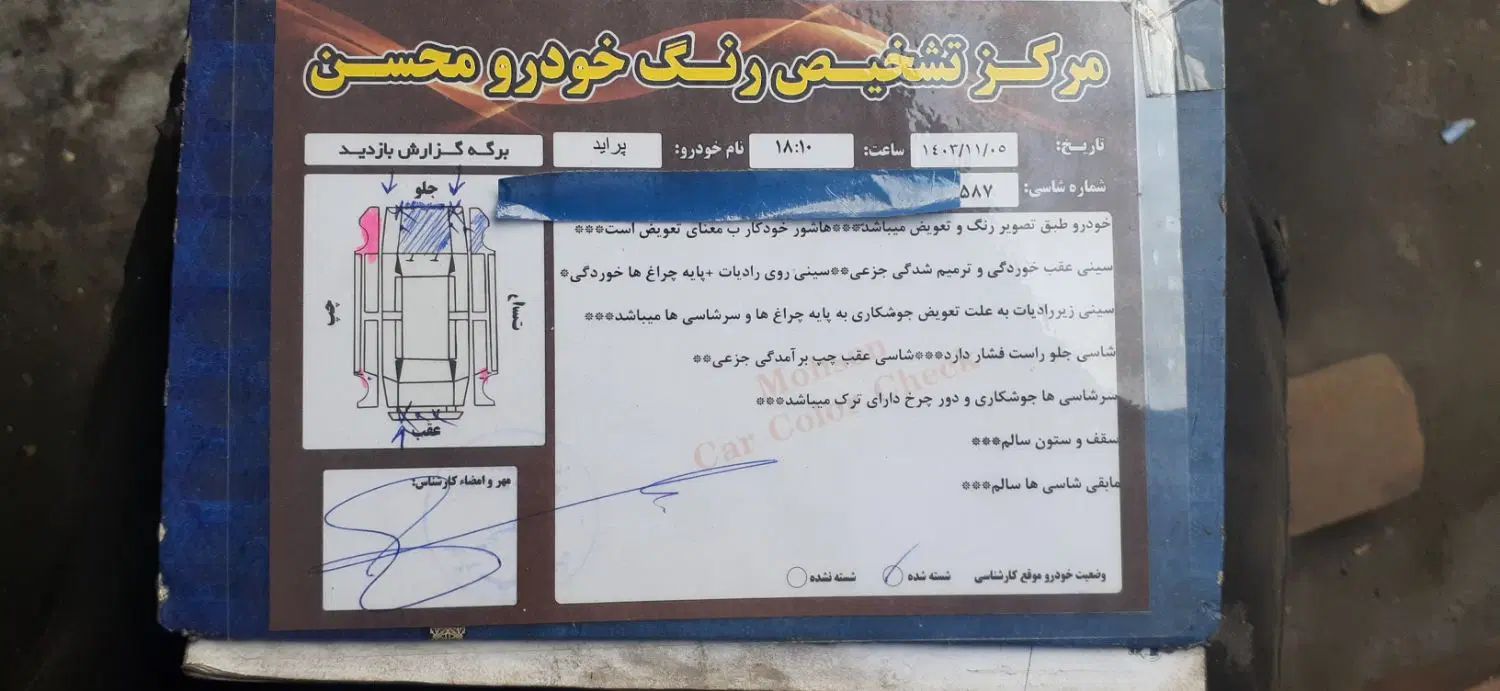 مرکز تشخیص رنگ خودرو محسن
تاریخ: ۱٤۰۳/۱۱/۰٥ ساعت: ۱۸:۱۰ نام خودرو: پراید برگه گزارش بازدید
شماره شاسی: ۵۸۷
جلو
چپ
راست
عقب
خودرو طبق تصویر رنگ و تعویض میباشد***هاشور خودکار ب معنای تعویض است***
سینی عقب خوردگی و ترمیم شدگی جزعی**سینی روی رادیات +پایه چراغ ها خوردگی*
سینی زیررادیات به علت تعویض جوشکاری به پایه چراغ ها و سرشاسی ها میباشد***
شاسی جلو راست فشار دارد***شاسی عقب چپ برآمدگی جزعی**
سرشاسی ها جوشکاری و دور چرخ دارای ترک میباشد***
سقف و ستون سالم***
مابقی شاسی ها سالم***
Mohsen
Car Color Check
مهر و امضاء کارشناس:
وضعیت خودرو موقع کارشناسی شسته شده شسته نشده